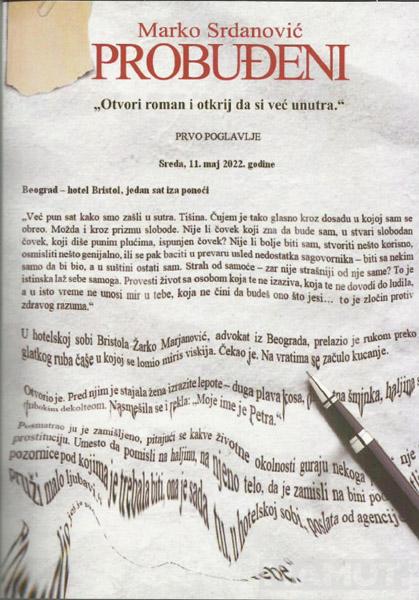 Marko Srdanović
PROBUĐENI
„Otvori roman i otkrij da si već unutra.“
PRVO POGLAVLJE
Sreda, 11. maj 2022. godine
Beograd – hotel Bristol, jedan sat iza ponoći
„Već pun sat kako smo zašli u sutra. Tišina. Čujem je tako glasno kroz dosadu u kojoj sam se
obreo. Možda i kroz prizmu slobode. Nije li čovek koji zna da bude sam, u stvari slobodan
čovek, koji diše punim plućima, ispunjen čovek? Nije li bolje biti sam, stvoriti nešto korisno,
osmisliti nešto genijalno, ili se pak baciti u prevaru usled nedostatka sagovornika – biti sa nekim
samo da bi bio, a u suštini ostati sam. Strah od samoće – zar nije strašniji od nje same? To je
istinska laž sebe samoga. Provesti život sa osobom koja te ne izaziva, koja te ne dovodi do ludila,
a u isto vreme ne unosi mir u tebe, koja ne čini da budeš ono što jesi... to je zločin protiv
zdravog razuma.“
U hotelskoj sobi Bristola Žarko Marjanović, advokat iz Beograda, prelazio je rukom preko
glatkog ruba čaše u kojoj se lomio miris viskija. Čekao je. Na vratima se začulo kucanje.
Otvorio je. Pred njim je stajala žena izrazite lepote – duga plava kosa, na šminka, haljina s
dubokim dekolteom. Nasmešila se i rekla: „Moje ime je Petra.“
Posmatrao ju je zamišljeno, pitajući se kakve životne okolnosti guraju nekoga nje
prostituciju. Umesto da pomisli na haljinu, na njeno telo, da je zamisli na bini pod
pozornice pod kojima je trebala biti, ona je sada tu, u hotelskoj sobi, poslata od agencije
pruži malo ljubavi